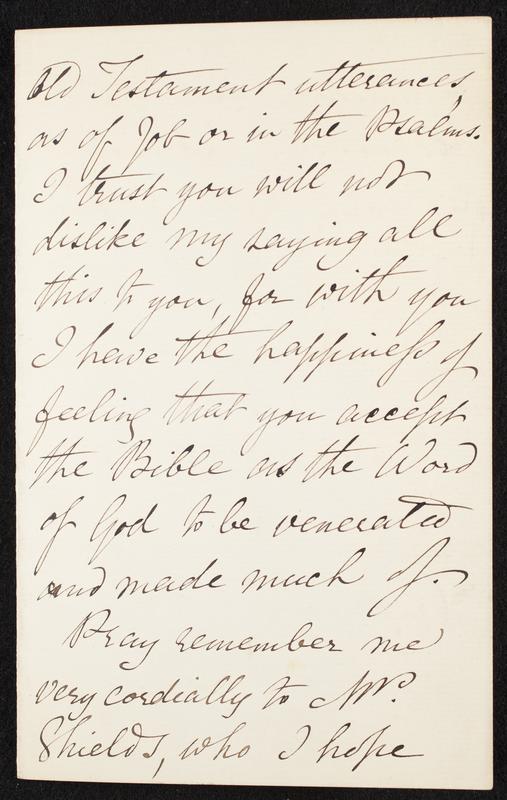 Old Testament utterances,
as of Job or in the Psalms.
I trust you will not
dislike my saying all
this to you, for with you
I have the happiness of
feeling that you accept
the Bible as the Word
of God to be venerated
and made much of.
Pray remember me
very cordially to Mr.
Shields, who I hope